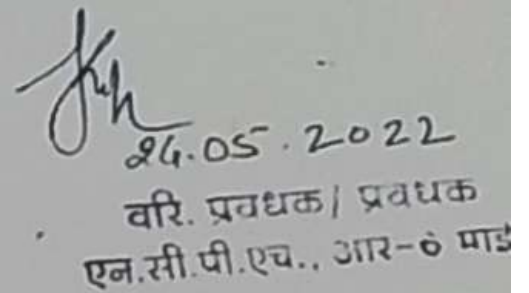 24.05.2022
वरि. प्रवधक/ प्रवधक
एन.सी.पी.एच., आर-6